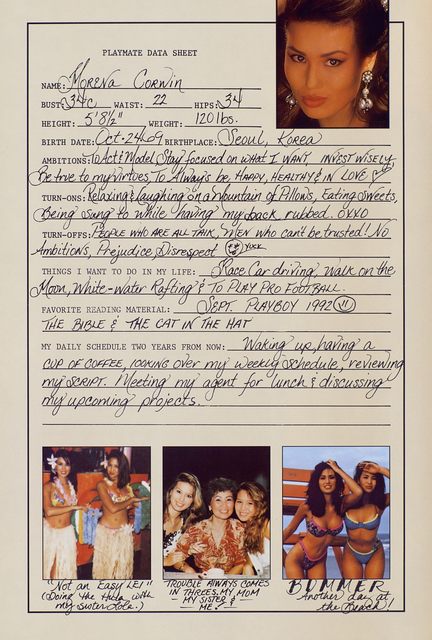 PLAYMATE DATA SHEET
NAME: Morena Corwin
BUST: 34C WAIST: 22 HIPS: 34
HEIGHT: 5'8½" WEIGHT: 120 lbs.
BIRTH DATE: Oct·24·69 BIRTHPLACE: Seoul, Korea
AMBITIONS: To Act & Model, Stay focused on what I WANT, INVEST WISELY,
Be true to my virtues, To Always be, HAPPY, HEALTHY & IN LOVE
TURN-ONS: Relaxing & laughing on a Mountain of Pillows, Eating Sweets,
Being Sung to while having my back rubbed. OXXO
TURN-OFFS: PEOPLE WHO ARE ALL TALK, MEN who can't be trusted! No
Ambitions, Prejudice, Disrespect YUCK
THINGS I WANT TO DO IN MY LIFE: Race Car driving, Walk on the
Moon, White-Water Rafting & To PLAY PRO FOOTBALL.
FAVORITE READING MATERIAL: SEPT. PLAYBOY 1992
THE BIBLE & THE CAT IN THE HAT
MY DAILY SCHEDULE TWO YEARS FROM NOW: Waking up, having a
CUP OF COFFEE, looking over my weekly schedule, reviewing
my SCRIPT. Meeting my agent for lunch & discussing
my upcoming projects.
"Not an Easy LEI"
(Doing the Hula with
my sister Lola.)
TROUBLE ALWAYS COMES
IN THREES, MY MOM
MY SISTER &
ME!
BUMMER
Another day at
the Beach!